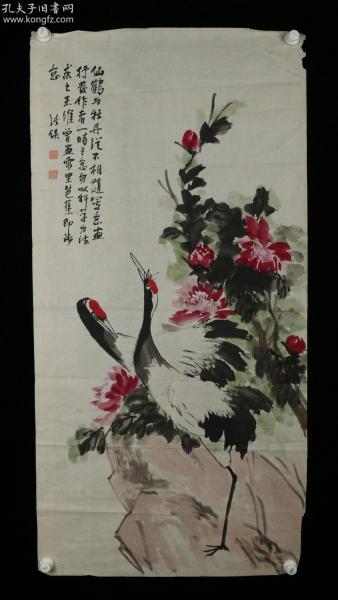 孔夫子旧书网
www.kongfz.com
仙鹤与牡丹従不相随写意画
抒发作者一时之意勿以科学方法
求之王维曾画雪里芭蕉即此
意